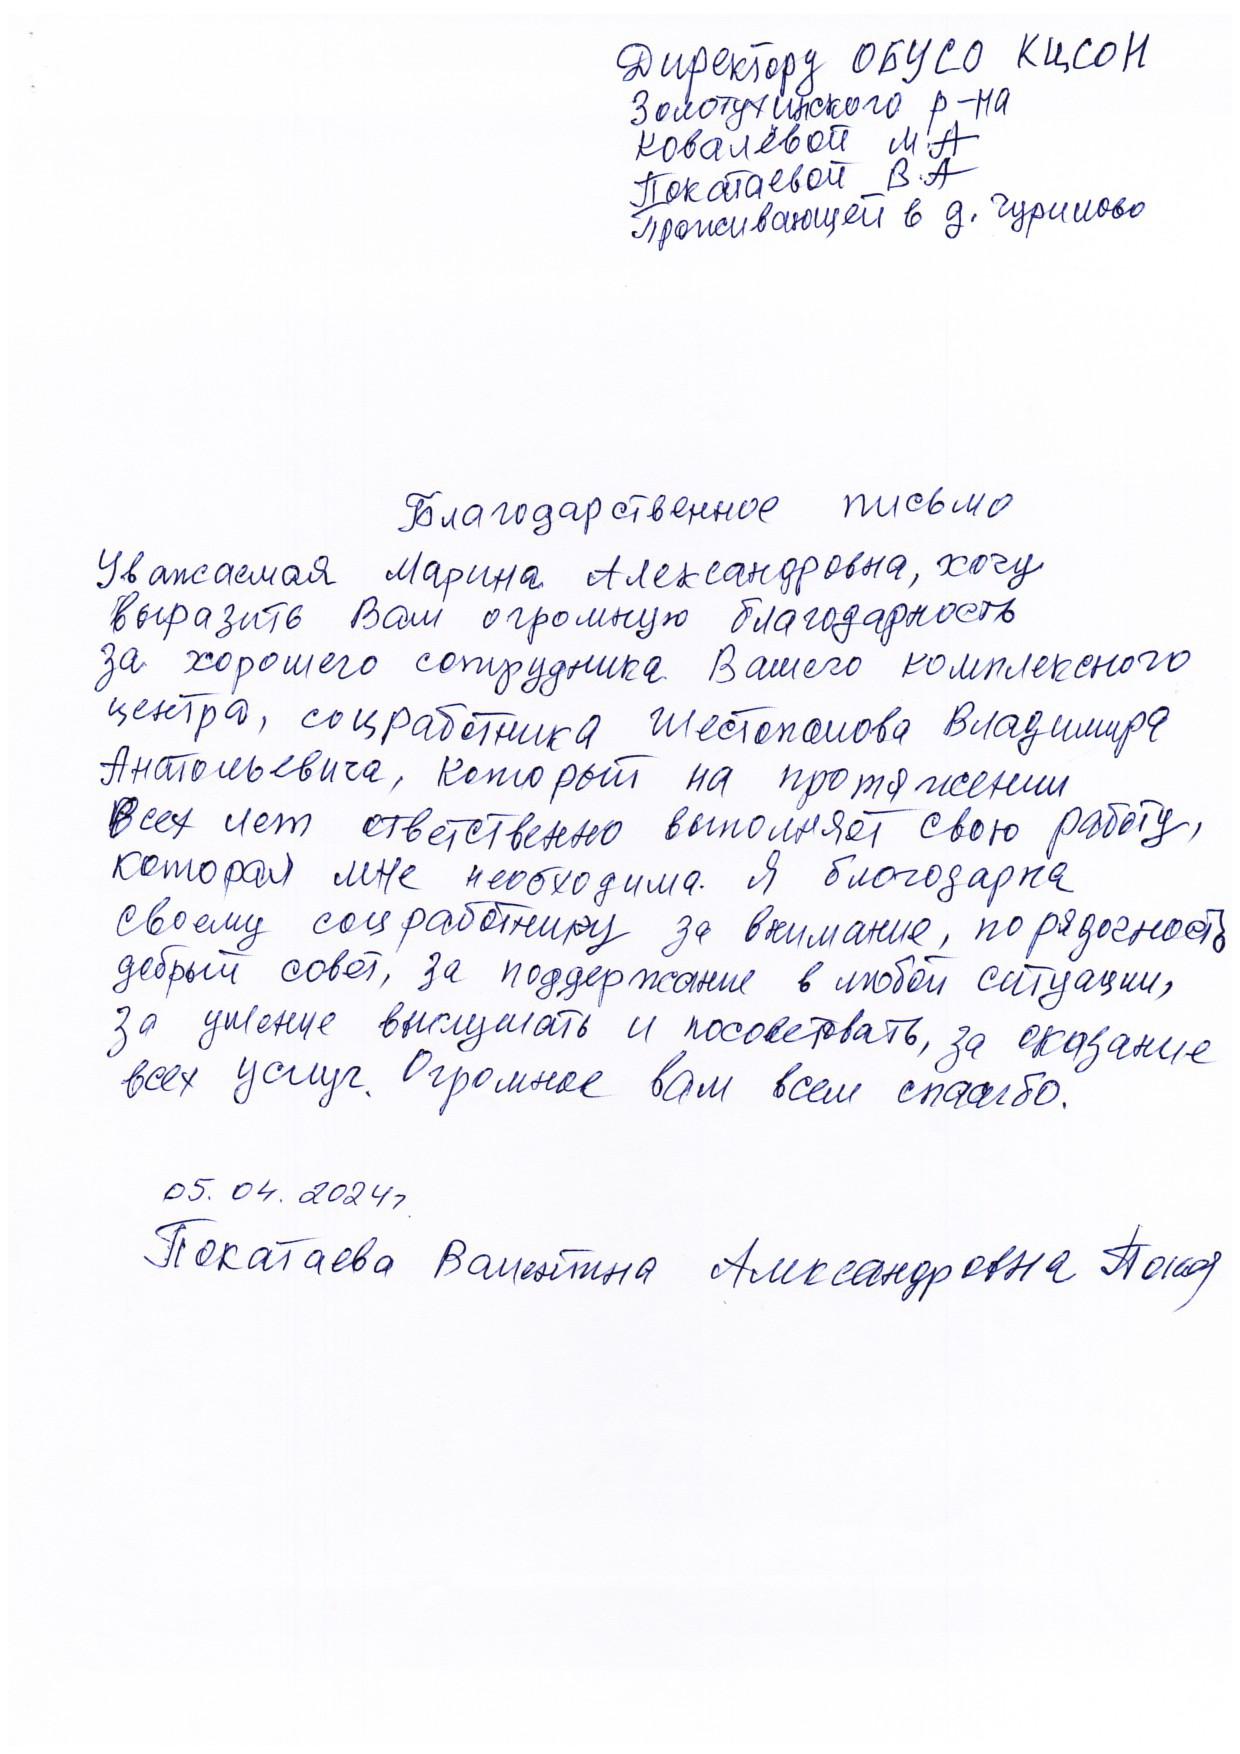 Директору ОБУСО КЦСОН
Золотухинского р-на
Ковалёвой М.А
Покатаевой В.А
Проживающей в д. Чурилово
Благодарственное письмо
Уважаемая Марина Александровна, хочу
выразить Вам огромную благодарность
за хорошего сотрудника Вашего комплексного
центра, соцработника Шестопалова Владимира
Анатольевича, который на протяжении
всех лет ответственно выполняет свою работу,
которая мне необходима. Я благодарна
своему соцработнику за внимание, порядочность
добрый совет, за поддержание в любой ситуации,
за умение выслушать и посоветовать, за оказание
всех услуг. Огромное вам всем спасибо.
05.04.2024г.
Покатаева Валентина Александровна